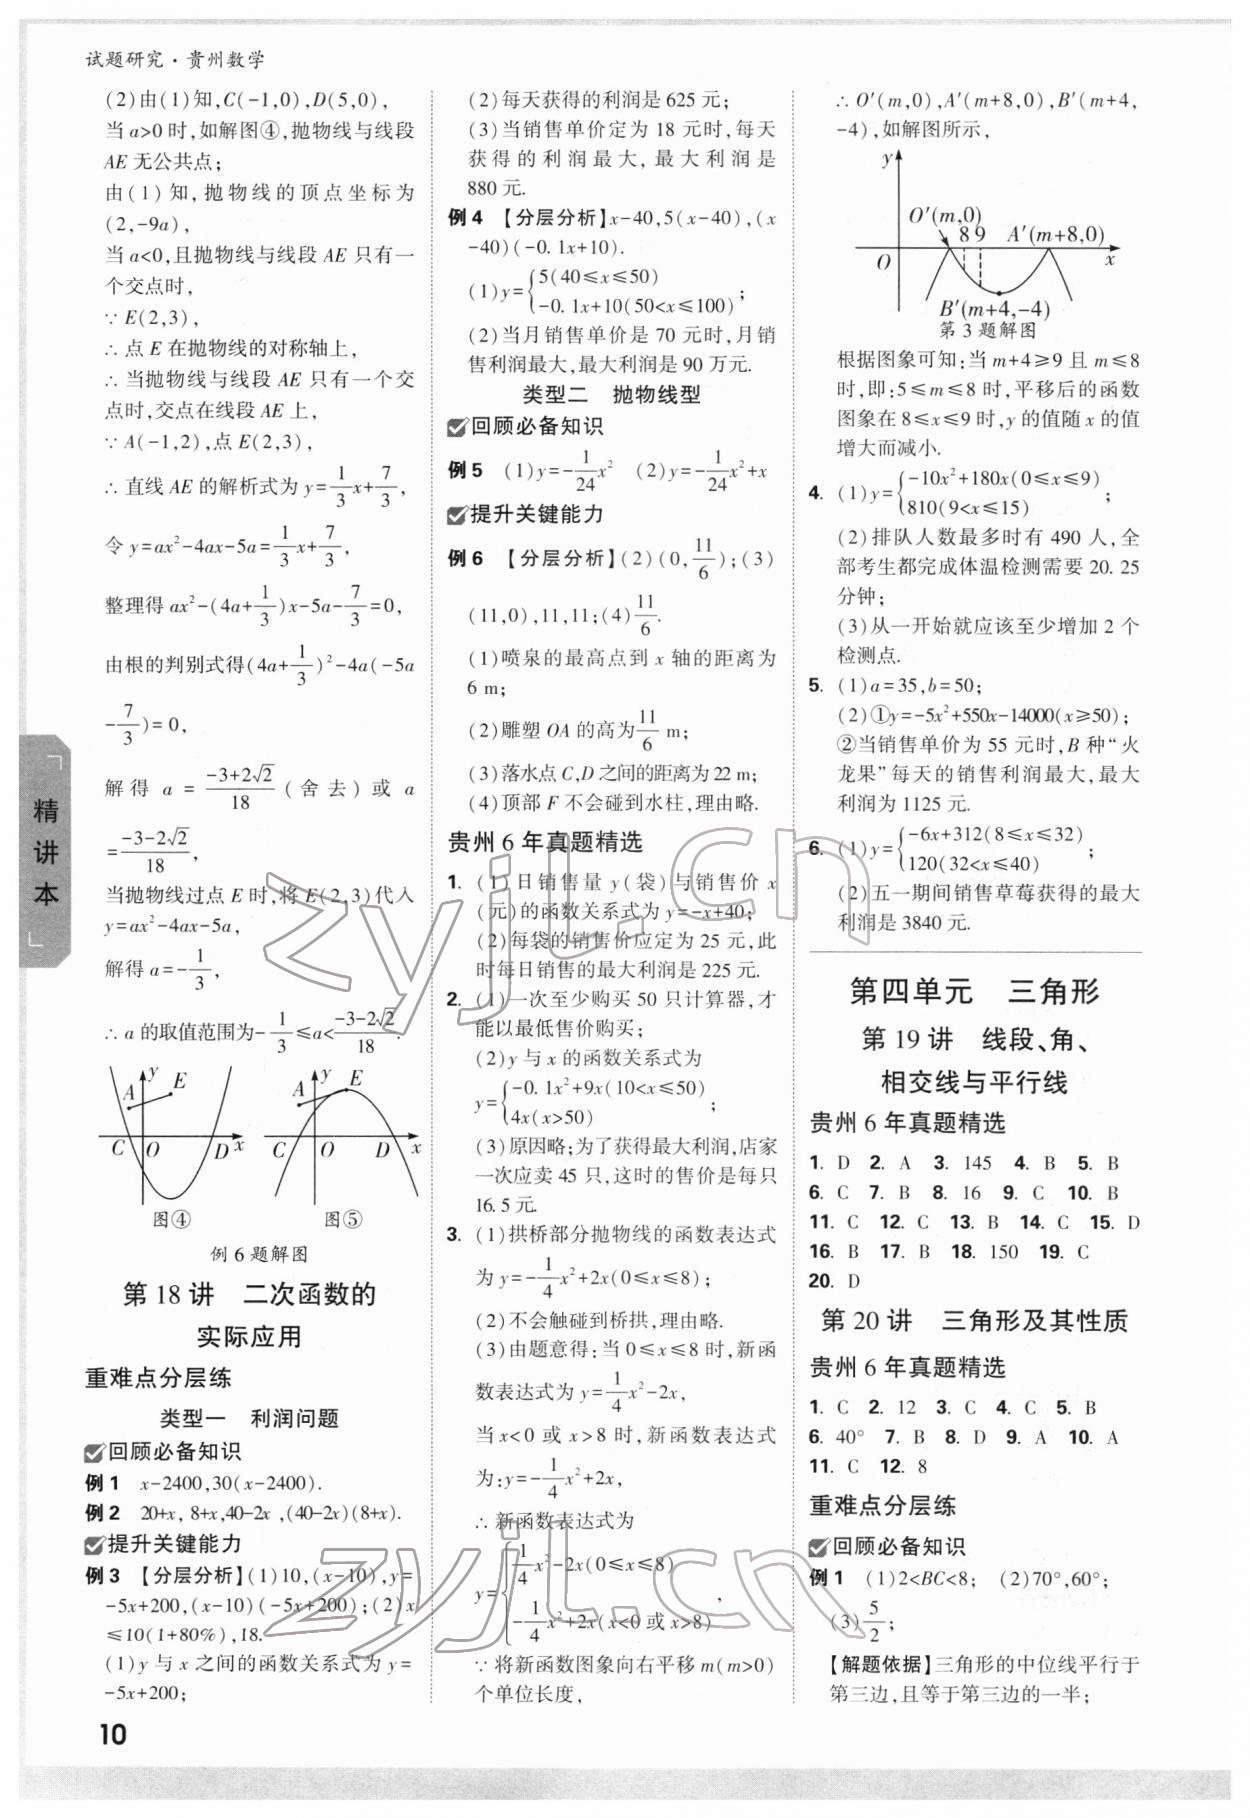 试题研究·贵州数学
(2)由(1)知,C(-1,0),D(5,0),
当 a>0 时,如解图④,抛物线与线段
AE 无公共点;
由(1)知,抛物线的顶点坐标为
(2,-9a),
当 a<0,且抛物线与线段 AE 只有一
个交点时,
∵ E(2,3),
∴ 点 E 在抛物线的对称轴上,
∴ 当抛物线与线段 AE 只有一个交
点时,交点在线段 AE 上,
∵ A(-1,2),点 E(2,3),
∴ 直线 AE 的解析式为 y=1/3x+7/3,
令 y=ax²-4ax-5a=1/3x+7/3,
整理得 ax²-(4a+1/3)x-5a-7/3=0,
由根的判别式得(4a+1/3)²-4a(-5a
-7/3)=0,
解得 a=(-3+2√2)/18(舍去)或 a
=(-3-2√2)/18,
当抛物线过点 E 时,将 E(2,3)代入
y=ax²-4ax-5a,
解得 a=-1/3,
∴ a 的取值范围为-1/3≤a<(-3-2√2)/18.
A y E C O D x
图④
A y E C O D x
图⑤
例 6 题解图
第 18 讲 二次函数的
实际应用
重难点分层练
类型一 利润问题
回顾必备知识
例 1 x-2400,30(x-2400).
例 2 20+x, 8+x,40-2x ,(40-2x)(8+x).
提升关键能力
例 3 【分层分析】(1)10,(x-10),y=
-5x+200,(x-10)(-5x+200);(2)x
≤10(1+80%),18.
(1)y 与 x 之间的函数关系式为 y=
-5x+200;
(2)每天获得的利润是 625 元;
(3)当销售单价定为 18 元时,每天
获得的利润最大,最大利润是
880 元.
例 4 【分层分析】x-40,5(x-40),(x
-40)(-0.1x+10).
(1)y={5(40≤x≤50)
-0.1x+10(50<x≤100);
(2)当月销售单价是 70 元时,月销
售利润最大,最大利润是 90 万元.
类型二 抛物线型
回顾必备知识
例 5 (1)y=-1/24x² (2)y=-1/24x²+x
提升关键能力
例 6 【分层分析】(2)(0,11/6);(3)
(11,0),11,11;(4)11/6.
(1)喷泉的最高点到 x 轴的距离为
6 m;
(2)雕塑 OA 的高为11/6 m;
(3)落水点 C,D 之间的距离为 22 m;
(4)顶部 F 不会碰到水柱,理由略.
贵州 6 年真题精选
1. (1)日销售量 y(袋)与销售价 x
(元)的函数关系式为 y=-x+40;
(2)每袋的销售价应定为 25 元,此
时每日销售的最大利润是 225 元.
2. (1)一次至少购买 50 只计算器,才
能以最低售价购买;
(2)y 与 x 的函数关系式为
y={-0.1x²+9x(10<x≤50)
4x(x>50);
(3)原因略;为了获得最大利润,店家
一次应卖 45 只,这时的售价是每只
16.5 元.
3. (1)拱桥部分抛物线的函数表达式
为 y=-1/4x²+2x(0≤x≤8);
(2)不会触碰到桥拱,理由略.
(3)由题意得:当 0≤x≤8 时,新函
数表达式为 y=1/4x²-2x,
当 x<0 或 x>8 时,新函数表达式
为:y=-1/4x²+2x,
∴ 新函数表达式为
y={1/4x²-2x(0≤x≤8)
-1/4x²+2x(x<0 或 x>8),
∵ 将新函数图象向右平移 m(m>0)
个单位长度,
∴ O′(m,0),A′(m+8,0),B′(m+4,
-4),如解图所示,
y
O′(m,0)
8 9 A′(m+8,0)
O x
B′(m+4,-4)
第 3 题解图
根据图象可知:当 m+4≥9 且 m≤8
时,即:5≤m≤8 时,平移后的函数
图象在 8≤x≤9 时,y 的值随 x 的值
增大而减小.
4. (1)y={-10x²+180x(0≤x≤9)
810(9<x≤15);
(2)排队人数最多时有 490 人,全
部考生都完成体温检测需要 20.25
分钟;
(3)从一开始就应该至少增加 2 个
检测点.
5. (1)a=35,b=50;
(2)①y=-5x²+550x-14000(x≥50);
②当销售单价为 55 元时,B 种“火
龙果”每天的销售利润最大,最大
利润为 1125 元.
6. (1)y={-6x+312(8≤x≤32)
120(32<x≤40);
(2)五一期间销售草莓获得的最大
利润是 3840 元.
第四单元 三角形
第 19 讲 线段、角、
相交线与平行线
贵州 6 年真题精选
1. D 2. A 3. 145 4. B 5. B
6. C 7. B 8. 16 9. C 10. B
11. C 12. C 13. B 14. C 15. D
16. B 17. B 18. 150 19. C
20. D
第 20 讲 三角形及其性质
贵州 6 年真题精选
1. C 2. 12 3. C 4. C 5. B
6. 40° 7. B 8. D 9. A 10. A
11. C 12. 8
重难点分层练
回顾必备知识
例 1 (1)2<BC<8; (2)70°,60°;
(3)5/2;
【解题依据】三角形的中位线平行于
第三边,且等于第三边的一半;
精讲本
10
zyjl.cn
zyjl.cn